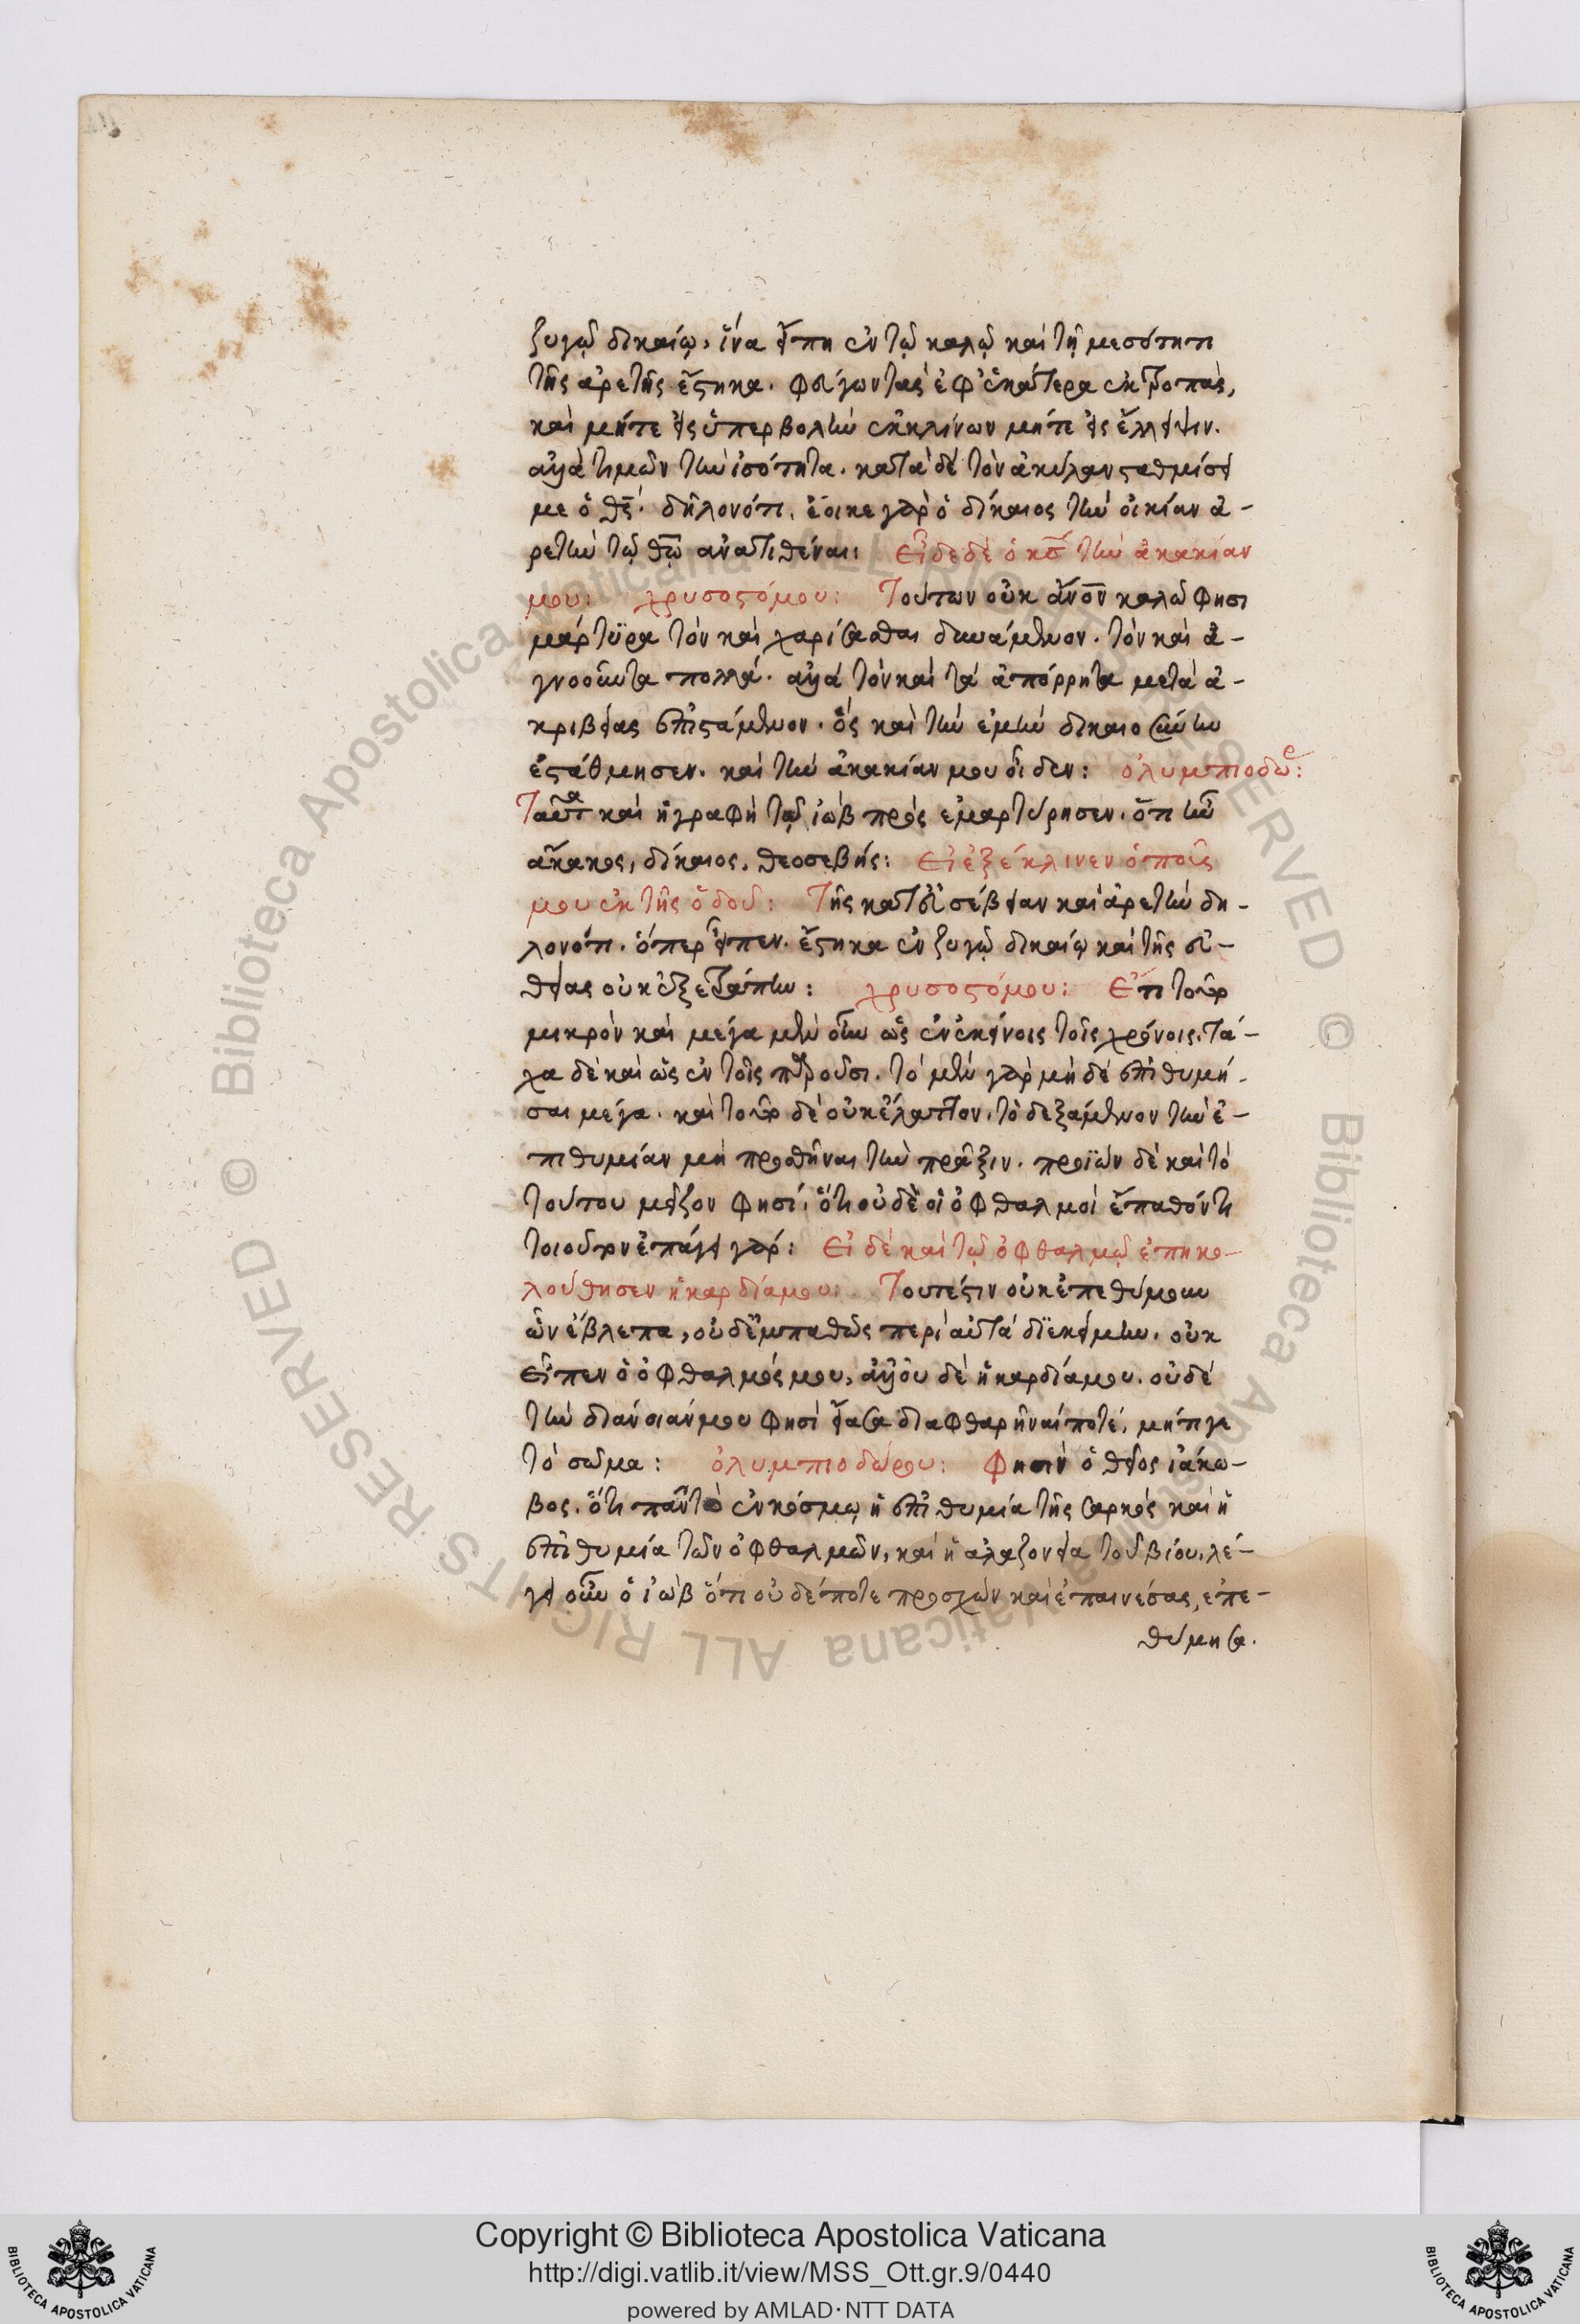 ζυγῷ δικαίῳ, ἵνα εἴπῃ ἐν τῷ καλῷ καὶ τῇ μεσότητι
τῆς ἀρετῆς ἔστηκα. φεύγων τὰς ἐφ' ἑκάτερα ἐκτροπὰς,
καὶ μήτε εἰς ὑπερβολὴν ἐκκλίνων μήτε εἰς ἔλλειψιν.
ἀλλὰ τιμῶν τὴν ἰσότητα. κατὰ δὲ τὸν ἀκύλαν σταθμίσει
με ὁ θς. δηλονότι. ἔοικε γὰρ ὁ δίκαιος τὴν οἰκίαν ἀ-
ρετὴν τῷ θῶ ἀνατιθέναι: Εἶδε δὲ ὁ κς τὴν ἀκακίαν
μου: χρυσοστόμου: Τούτων οὐκ ἄνον καλῶ φησι
μάρτυρα τὸν καὶ χαρίσασθαι δυνάμενον. τὸν καὶ ἀ-
γνοοῦντα πολλά. ἀλλὰ τὸν καὶ τὰ ἀπόρρητα μετὰ ἀ-
κριβείας ἐπιστάμενον. ὃς καὶ τὴν ἐμὴν δικαιοσύνην
ἐστάθμησεν. καὶ τὴν ἀκακίαν μου οἶδεν: ὀλυμπιοδώρ:
Ταῦτα καὶ ἡ γραφὴ τῷ ἰὼβ προσεμαρτύρησεν. ὅτι ἦν
ἄκακος, δίκαιος, θεοσεβής: Εἰ ἐξέκλινεν ὁ ποῦς
μου ἐκ τῆς ὁδοῦ: Τῆς κατ' εὐσέβειαν καὶ ἀρετὴν δη-
λονότι. ὅπερ εἶπεν. ἔστηκα ἐν ζυγῷ δικαίῳ καὶ τῆς εὐ-
θείας οὐκ ἐξετράπην: χρυσοστόμου: Ἐπὶ τοῦτο
μικρὸν καὶ μέγα μὲν οὖν ὡς ἐν ἐκείνοις τοῖς χρόνοις. Τά-
χα δὲ καὶ ὡς ἐν τοῖς παροῦσι. τὸ μὲν γὰρ μὴ δὲ ἐπιθυμῆ-
σαι μέγα. καὶ τοῦτο δὲ οὐκ ἔλαττον. τὸ δεξάμενον τὴν ἐ-
πιθυμίαν μὴ προσθῆναι τὴν πρᾶξιν. προϊὼν δὲ καὶ τὸ
τούτου μεῖζον φησί, ὅτι οὐδὲ οἱ ὀφθαλμοὶ ἔπαθόν τι
τοιοῦτον ἐπάγει γάρ: Εἰ δὲ καὶ τῷ ὀφθαλμῷ ἐπηκο-
λούθησεν ἡ καρδία μου: Τουτέστιν οὐκ ἐπεθύμουν
ὧν ἔβλεπα, οὐδ' ἐμπαθῶς περὶ αὐτὰ διεκείμην. οὐκ
εἶπεν ὁ ὀφθαλμός μου, ἀλλ' οὐ δὲ ἡ καρδία μου. οὐδὲ
τὴν διάνοιάν μου φησὶ εἴασα διαφθαρῆναί ποτέ, μήτιγε
τὸ σῶμα: ὀλυμπιοδώρου: Φησὶν ὁ θεῖος ἰάκω-
βος. ὅτι πᾶν τὸ ἐν κόσμῳ ἡ ἐπιθυμία τῆς σαρκὸς καὶ ἡ
ἐπιθυμία τῶν ὀφθαλμῶν, καὶ ἡ ἀλαζονεία τοῦ βίου. λέ-
γει οὖν ὁ ἰὼβ ὅτι οὐδέποτε προσχὼν καὶ ἐπαινέσας, ἐπε-
θύμησα.
Copyright © Biblioteca Apostolica Vaticana
http://digi.vatlib.it/view/MSS_Ott.gr.9/0440
powered by AMLAD·NTT DATA